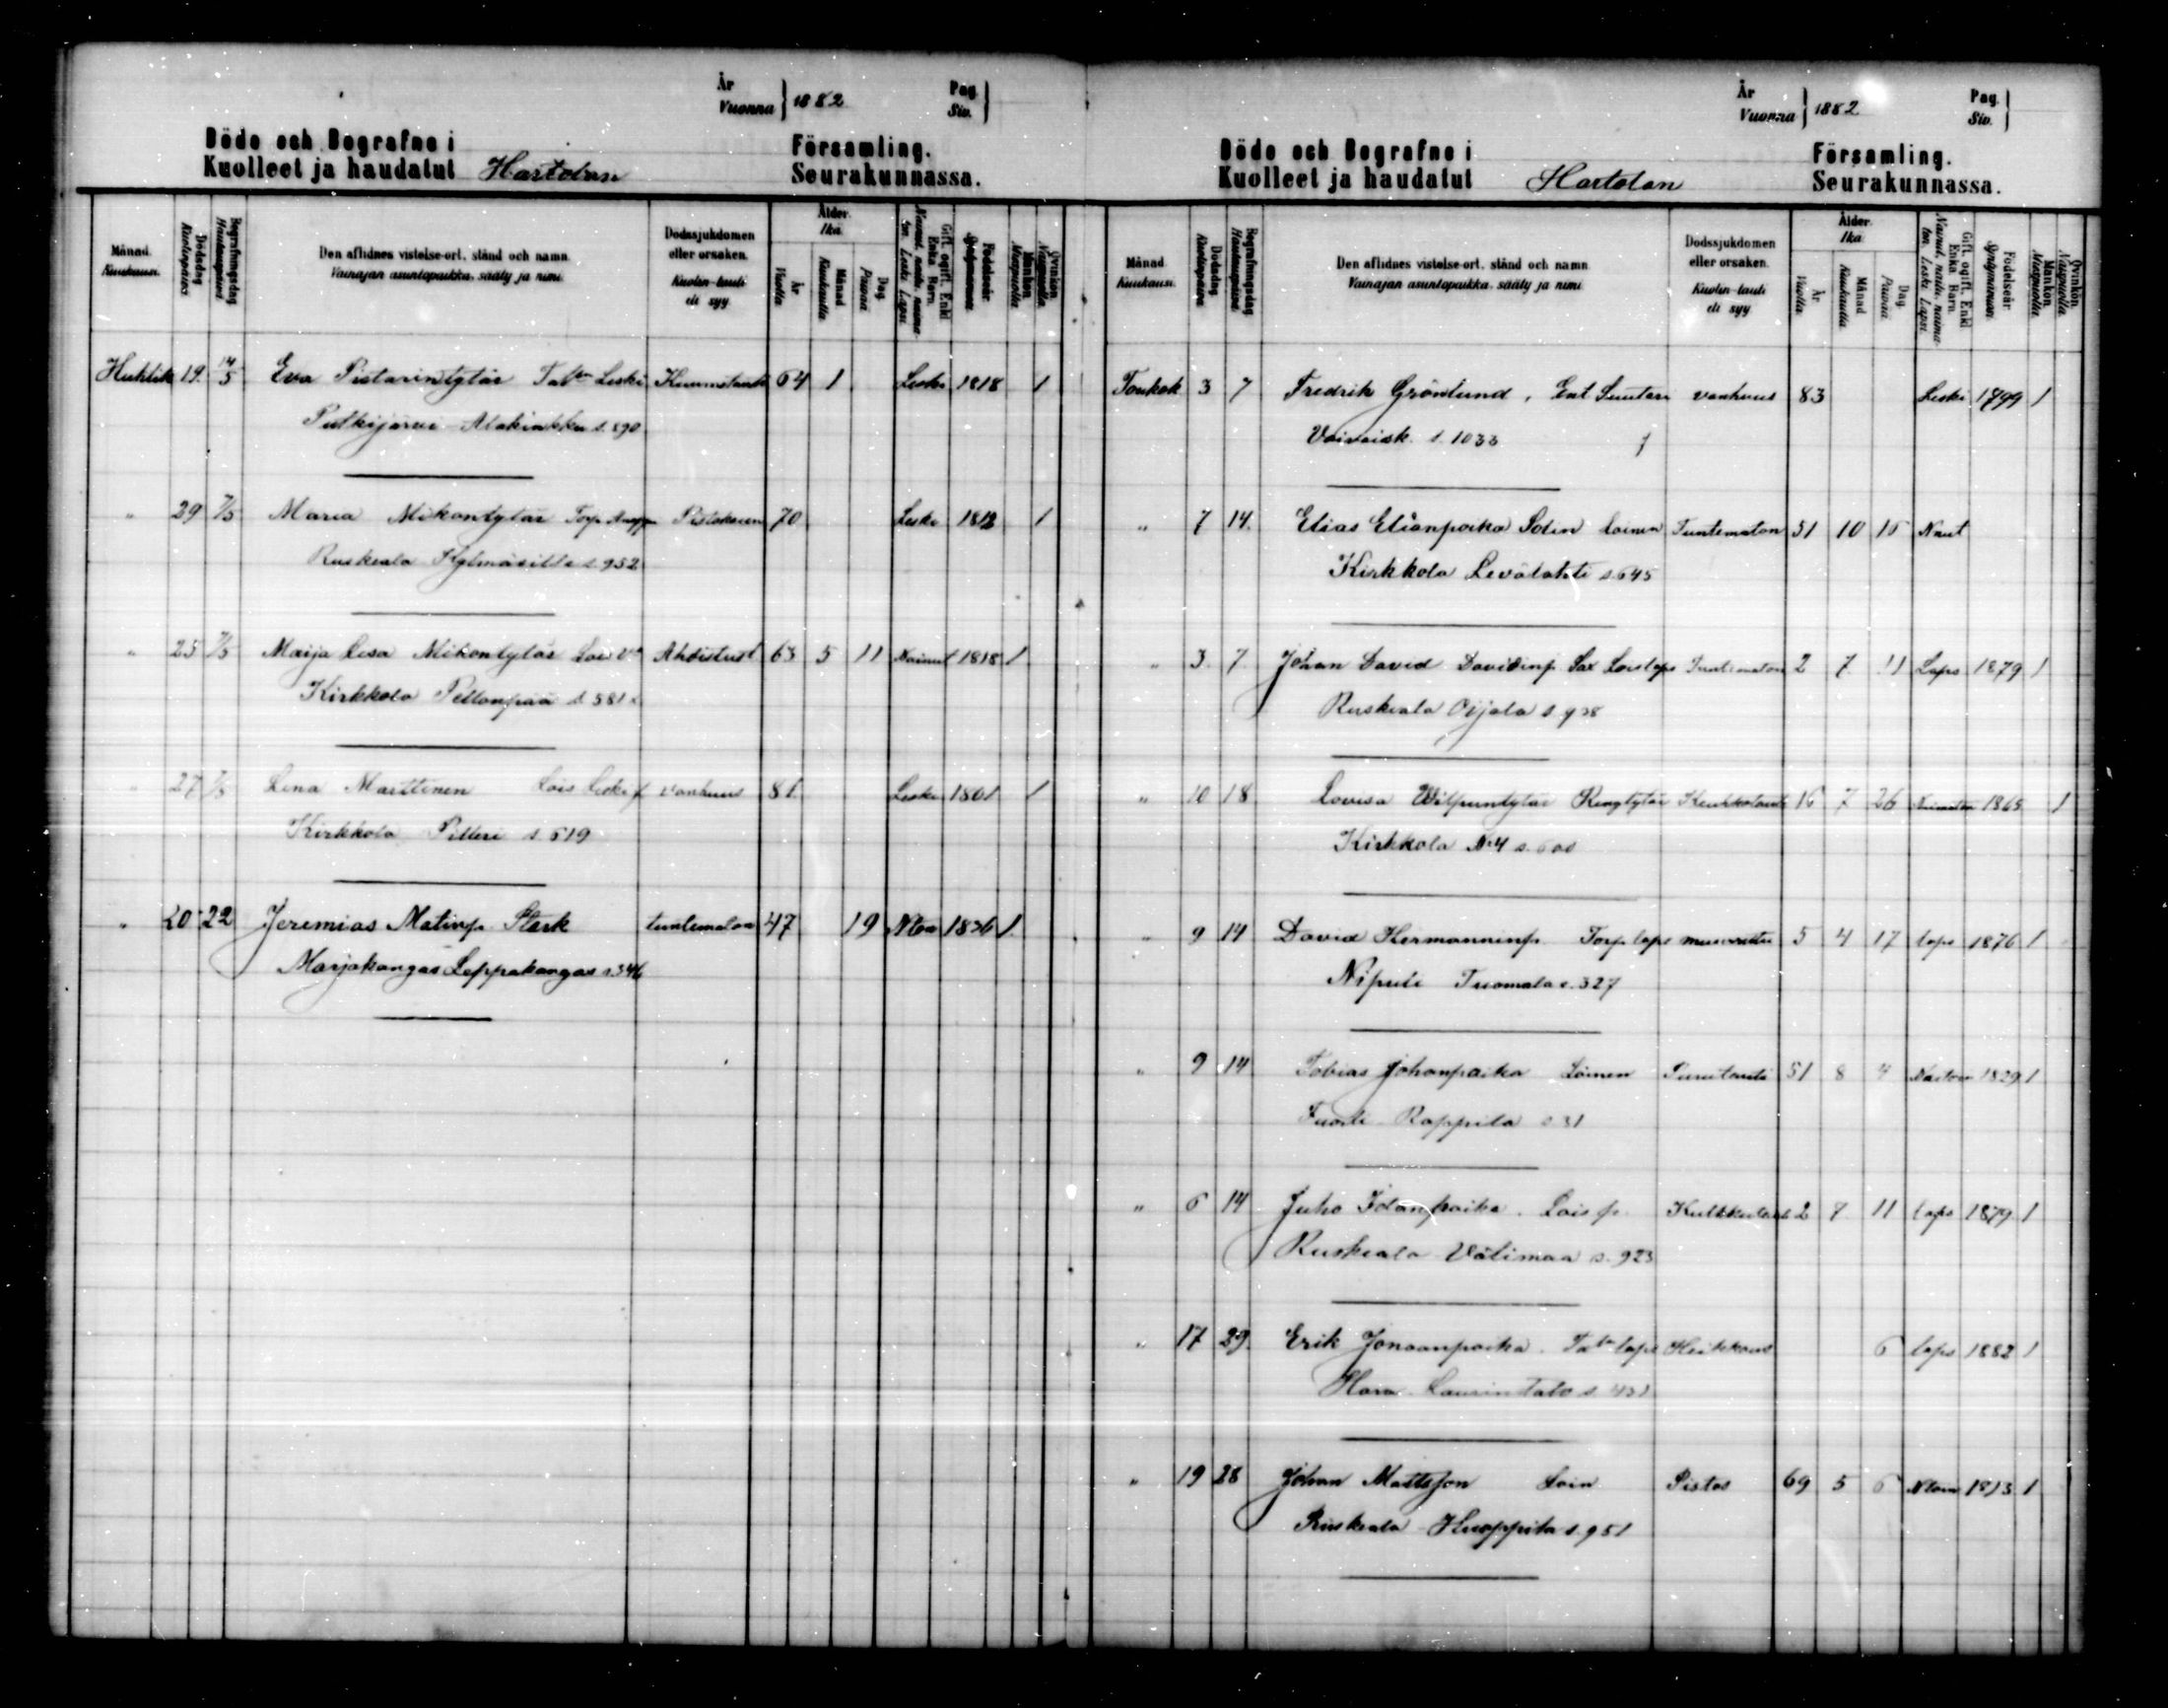 År
Vuonna } 1882
Pag.
Siv. }
Döde och Begrafne i
Kuolleet ja haudatut Hartolan
Församling.
Seurakunnassa.
Månad. Kuukausi.
Dödsdag Kuolinpäivä
Begrafningsdag Hautauspäivä
Den aflidnes vistelse-ort, stånd och namn.
Vainajan asuntopaikka, sääty ja nimi.
Dödssjukdomen eller orsaken.
Kuolin-tauti eli syy
Ålder. Ikä.
År Vuotta
Månad Kuukautta
Dag Päivää
Gift, ogift, Enkl. Enka Barn.
Födelseår Syntymävuosi
Mankön Miespuolia
Qvinkön Naispuolia
Huhtik 19. 14/5 Eva Pistarintytär Leski 64 1 Leski 1818 1
Putkijärvi s. 890
" 29 7/5 Maria Mikontytär Pistoksen 70 Leski 1812 1
Ruskeala Kylmäsilta s. 952
" 25 7/5 Maija Lesa Mikontytär Ahdistust 63 5 11 Nainut 1818 1
Kirkkola Peltonpää s. 581
" 27 7/5 Lena Marttinen Lois Leski vanhuus 81 Leski 1801 1
Kirkkola Pitteri s. 619
" 20 22 Jeremias Matinp. Stark tuntematon 47 19 1836 1
Marjakangas Leppäkangas s. 346
År
Vuonna } 1882
Pag.
Siv. }
Döde och Begrafne i
Kuolleet ja haudatut Hartolan
Församling.
Seurakunnassa.
Månad Kuukausi.
Dödsdag Kuolinpäivä
Begrafningsdag Hautauspäivä
Den aflidnes vistelse-ort, stånd och namn
Vainajan asuntopaikka, sääty ja nimi
Dödssjukdomen eller orsaken.
Kuolin-tauti eli syy
Ålder. Ikä
År Vuotta
Månad Kuukautta
Dag Päivää
Gift, ogift, Enkl. Enka Barn.
Födelseår Syntymävuosi
Mankön Miespuolia
Qvinkön Naispuolia
Toukok 3 7 Fredrik Grönlund, Ent Suutari vanhuus 83 Leski 1799 1
Vaivaisk. s. 1033
" 7 14. Elias Elianpoika Solin Loinen Tuntematon 51 10 15 Naut
Kirkkola Levälahti s. 645
" 3. 7 Johan David Davidinp. Sax Loislaps Tuntematon 2 7 11 Laps 1879 1
Ruskeala Ojjala s. 938
" 10 18 Lovisa Wilpuntytär Keuhkotauti 16 7 26 1865 1
Kirkkola №4 s. 600
" 9 14 David Hermanninp. Torp laps 5 4 17 laps 1876 1
Nipuli Tuomala s. 327
" 9 14 Tobias Johanpoika Loinen 51 8 4 1829 1
Ruppila s. 31
" 6 14 Juho Lois p. Kulkkutauti 2 7 11 laps 1879 1
Ruskeala Välimaa s. 923
" 17 29. Erik Joonaanpoika laps Heikkous 6 laps 1882 1
Laurintalo s. 431
" 19 28 Johan Mattsson Loin Pistos 69 5 6 1813 1
Ruskeala Huoppila s. 951